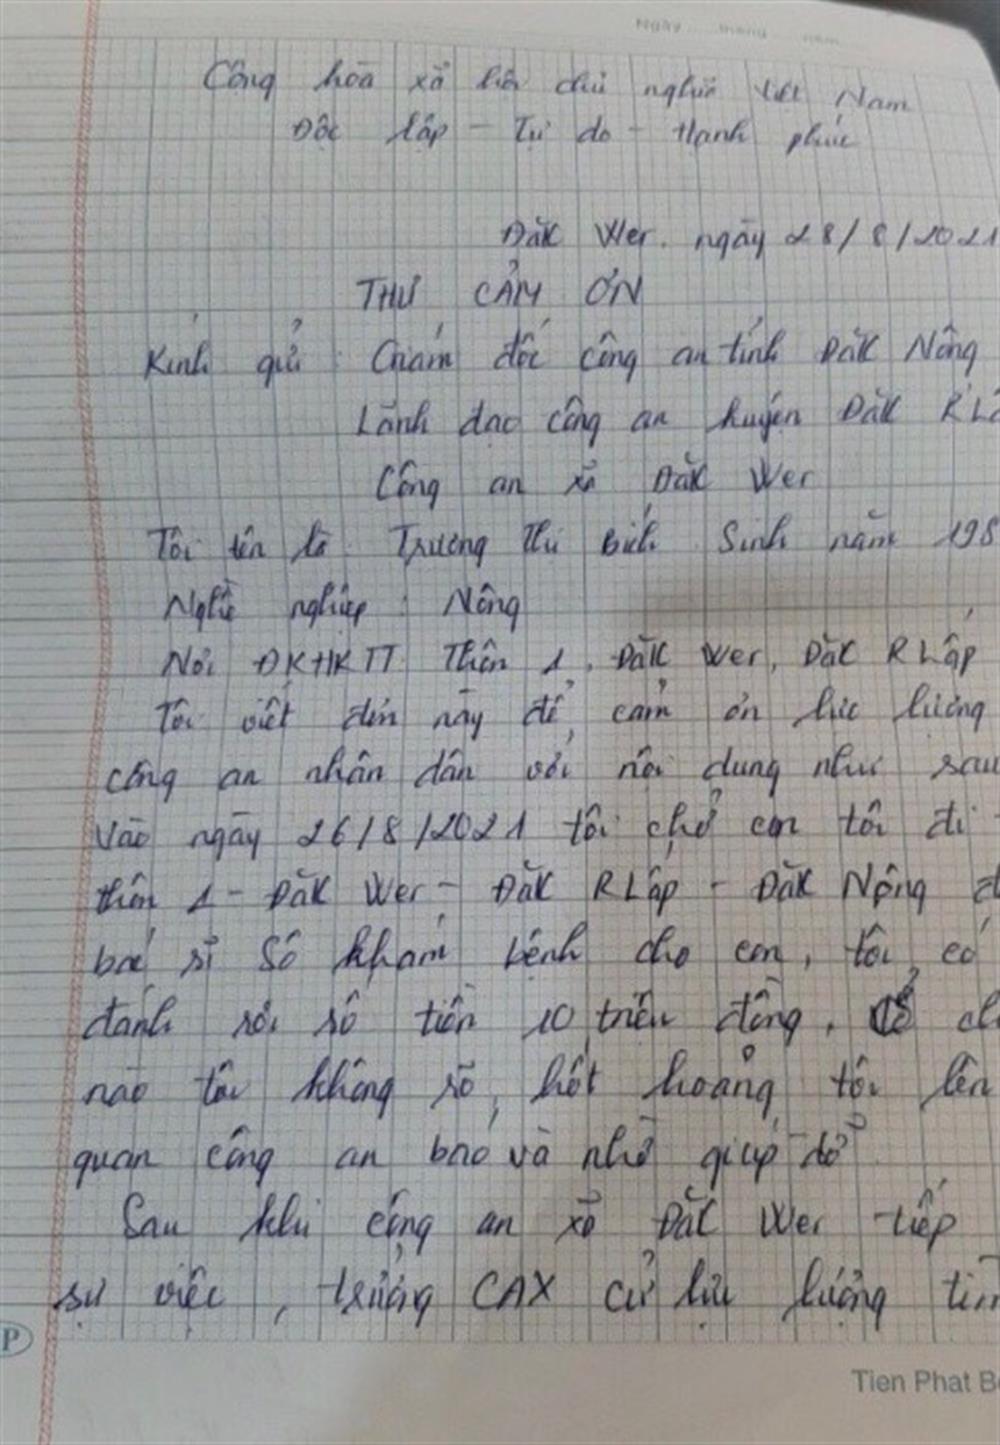 Ngày tháng năm
Công hòa xã hôi chủ nghĩa Việt Nam
Độc lâp - Tự do - Hạnh phúc
Đăk Wer. ngày 28/8/2021
THƯ CẢM ƠN
Kính gửi : Giám đốc công an tỉnh Đăk Nông
Lãnh đạo công an huyện Đăk R'Lấ
Công an xã Đăk Wer
Tôi tên là Trương Thị Bích Sinh năm 198
Nghề nghiệp : Nông
Nơi ĐKHKTT Thôn 1, Đăk Wer, Đăk RLấp
Tôi viết đơn này để cảm ơn lực lượng
công an nhân dân với nội dung như sau
Vào ngày 26/8/2021 tôi chở con tôi đi
thôn 1 - Đăk Wer - Đăk RLấp - Đăk Nông
bác sĩ Sô khám bệnh cho con, tôi có
đánh rơi số tiền 10 triệu đồng, ở ch
nào tôi không rõ, hốt hoảng tôi lên
quan công an báo và nhờ giúp đỡ
Sau khi công an xã Đăk Wer tiếp
sự việc, trưởng CAX cử lực lượng tìm
P
Tien Phat B